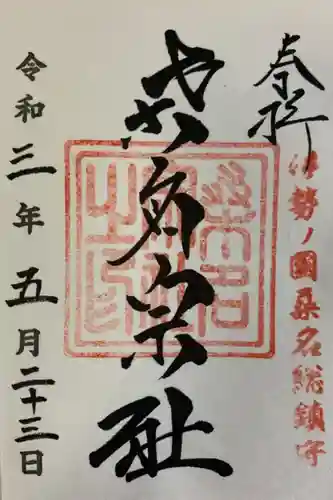 奉拝
伊勢ノ國桑名総鎮守
桑名宗社
令和三年五月二十三日